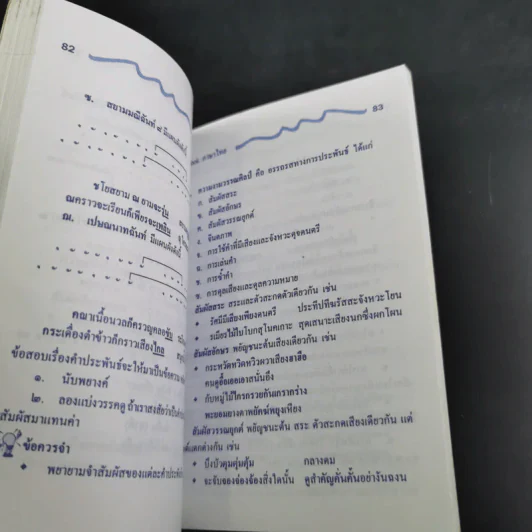 82
ซ. สยามมณีฉันท์ ๘ มีแผนผังดังนี้
ชโยสยาม ณ ยามจะรุ่น
ณคราวจะเรียนก็เพียรจะเพลิน
ฌ. เปษณนาทฉันท์ มีแผนผังดังนี้
คณาเนื้อนวลก็ครวญคลอขับ
กระเดื่องตำข้าวก็กราวเสียงไกล
ข้อสอบเรื่องคำประพันธ์จะให้มาเป็นข้อความ
๑. นับพยางค์
๒. ลองแบ่งวรรคดู ถ้าเราสงสัยว่าเป็น
สัมผัสมาแทนค่า
ข้อควรจำ
• พยายามจำสัมผัสของแต่ละคำประพันธ์
83
ภาษาไทย
ความงามวรรณศิลป์ คือ อรรถรสทางการประพันธ์ ได้แก่
ก. สัมผัสสระ
ข. สัมผัสอักษร
ค. สัมผัสวรรณยุกต์
ง. จินตภาพ
จ. การใช้คำที่มีเสียงและจังหวะดุจดนตรี
ฉ. การเล่นคำ
ช. การซ้ำคำ
ซ. การดุลเสียงและดุลความหมาย
สัมผัสสระ สระและตัวสะกดตัวเดียวกัน เช่น
• รัศมีมีเสียงเพียงดนตรี ประทีปทีฆรัสสระจังหวะโยน
• ระเมียรไม้ใบโบกสุโนคเกาะ สุดเสนาะเสียงนกซึ่งผกโผน
สัมผัสอักษร พยัญชนะต้นเสียงเดียวกัน เช่น
• กระหวัดหวีดหวิววผวาเสียงฮาฮือ
คนดูอื้อเออเอาสนั่นอึง
• กับหมู่ไม้ไกรกรวยกันเกรากร่าง
พะยอมยางตาพยัคฆ์พยุงเหียง
สัมผัสวรรณยุกต์ พยัญชนะต้น สระ ตัวสะกดเสียงเดียวกัน แต่
แตกต่างกัน เช่น
• บึงบัวตุมตุ่มตุ้ม กลางตม
• จะจับจองจ่องจ้องสิ่งใดนั้น ดูสำคัญคั่นคั้นอย่างันฉงน